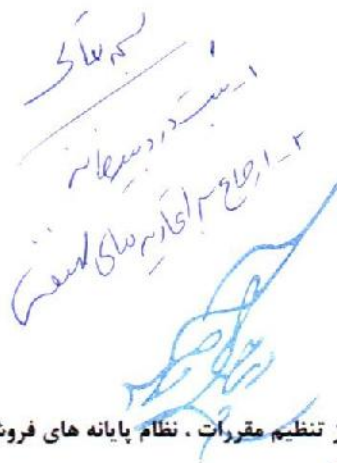 بسمه تعالی
۱- ثبت در دبیرخانه
۲- ارجاع به اتحادیه های صنفی
ز تنظیم مقررات ، نظام پایانه های فروش